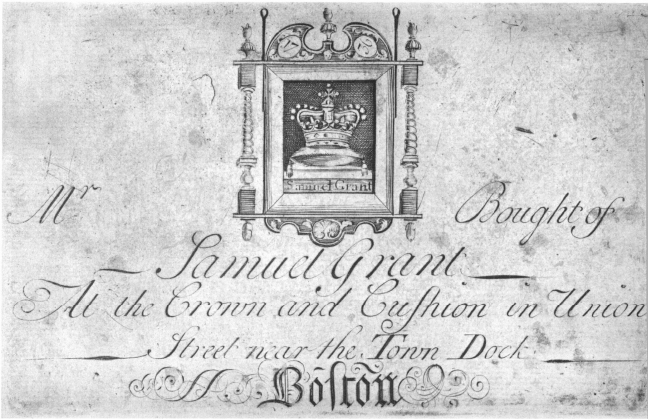 Samuel Grant
Mr Bought of
Samuel Grant
At the Crown and Cuſhion in Union
Street near the Town Dock
Boſton